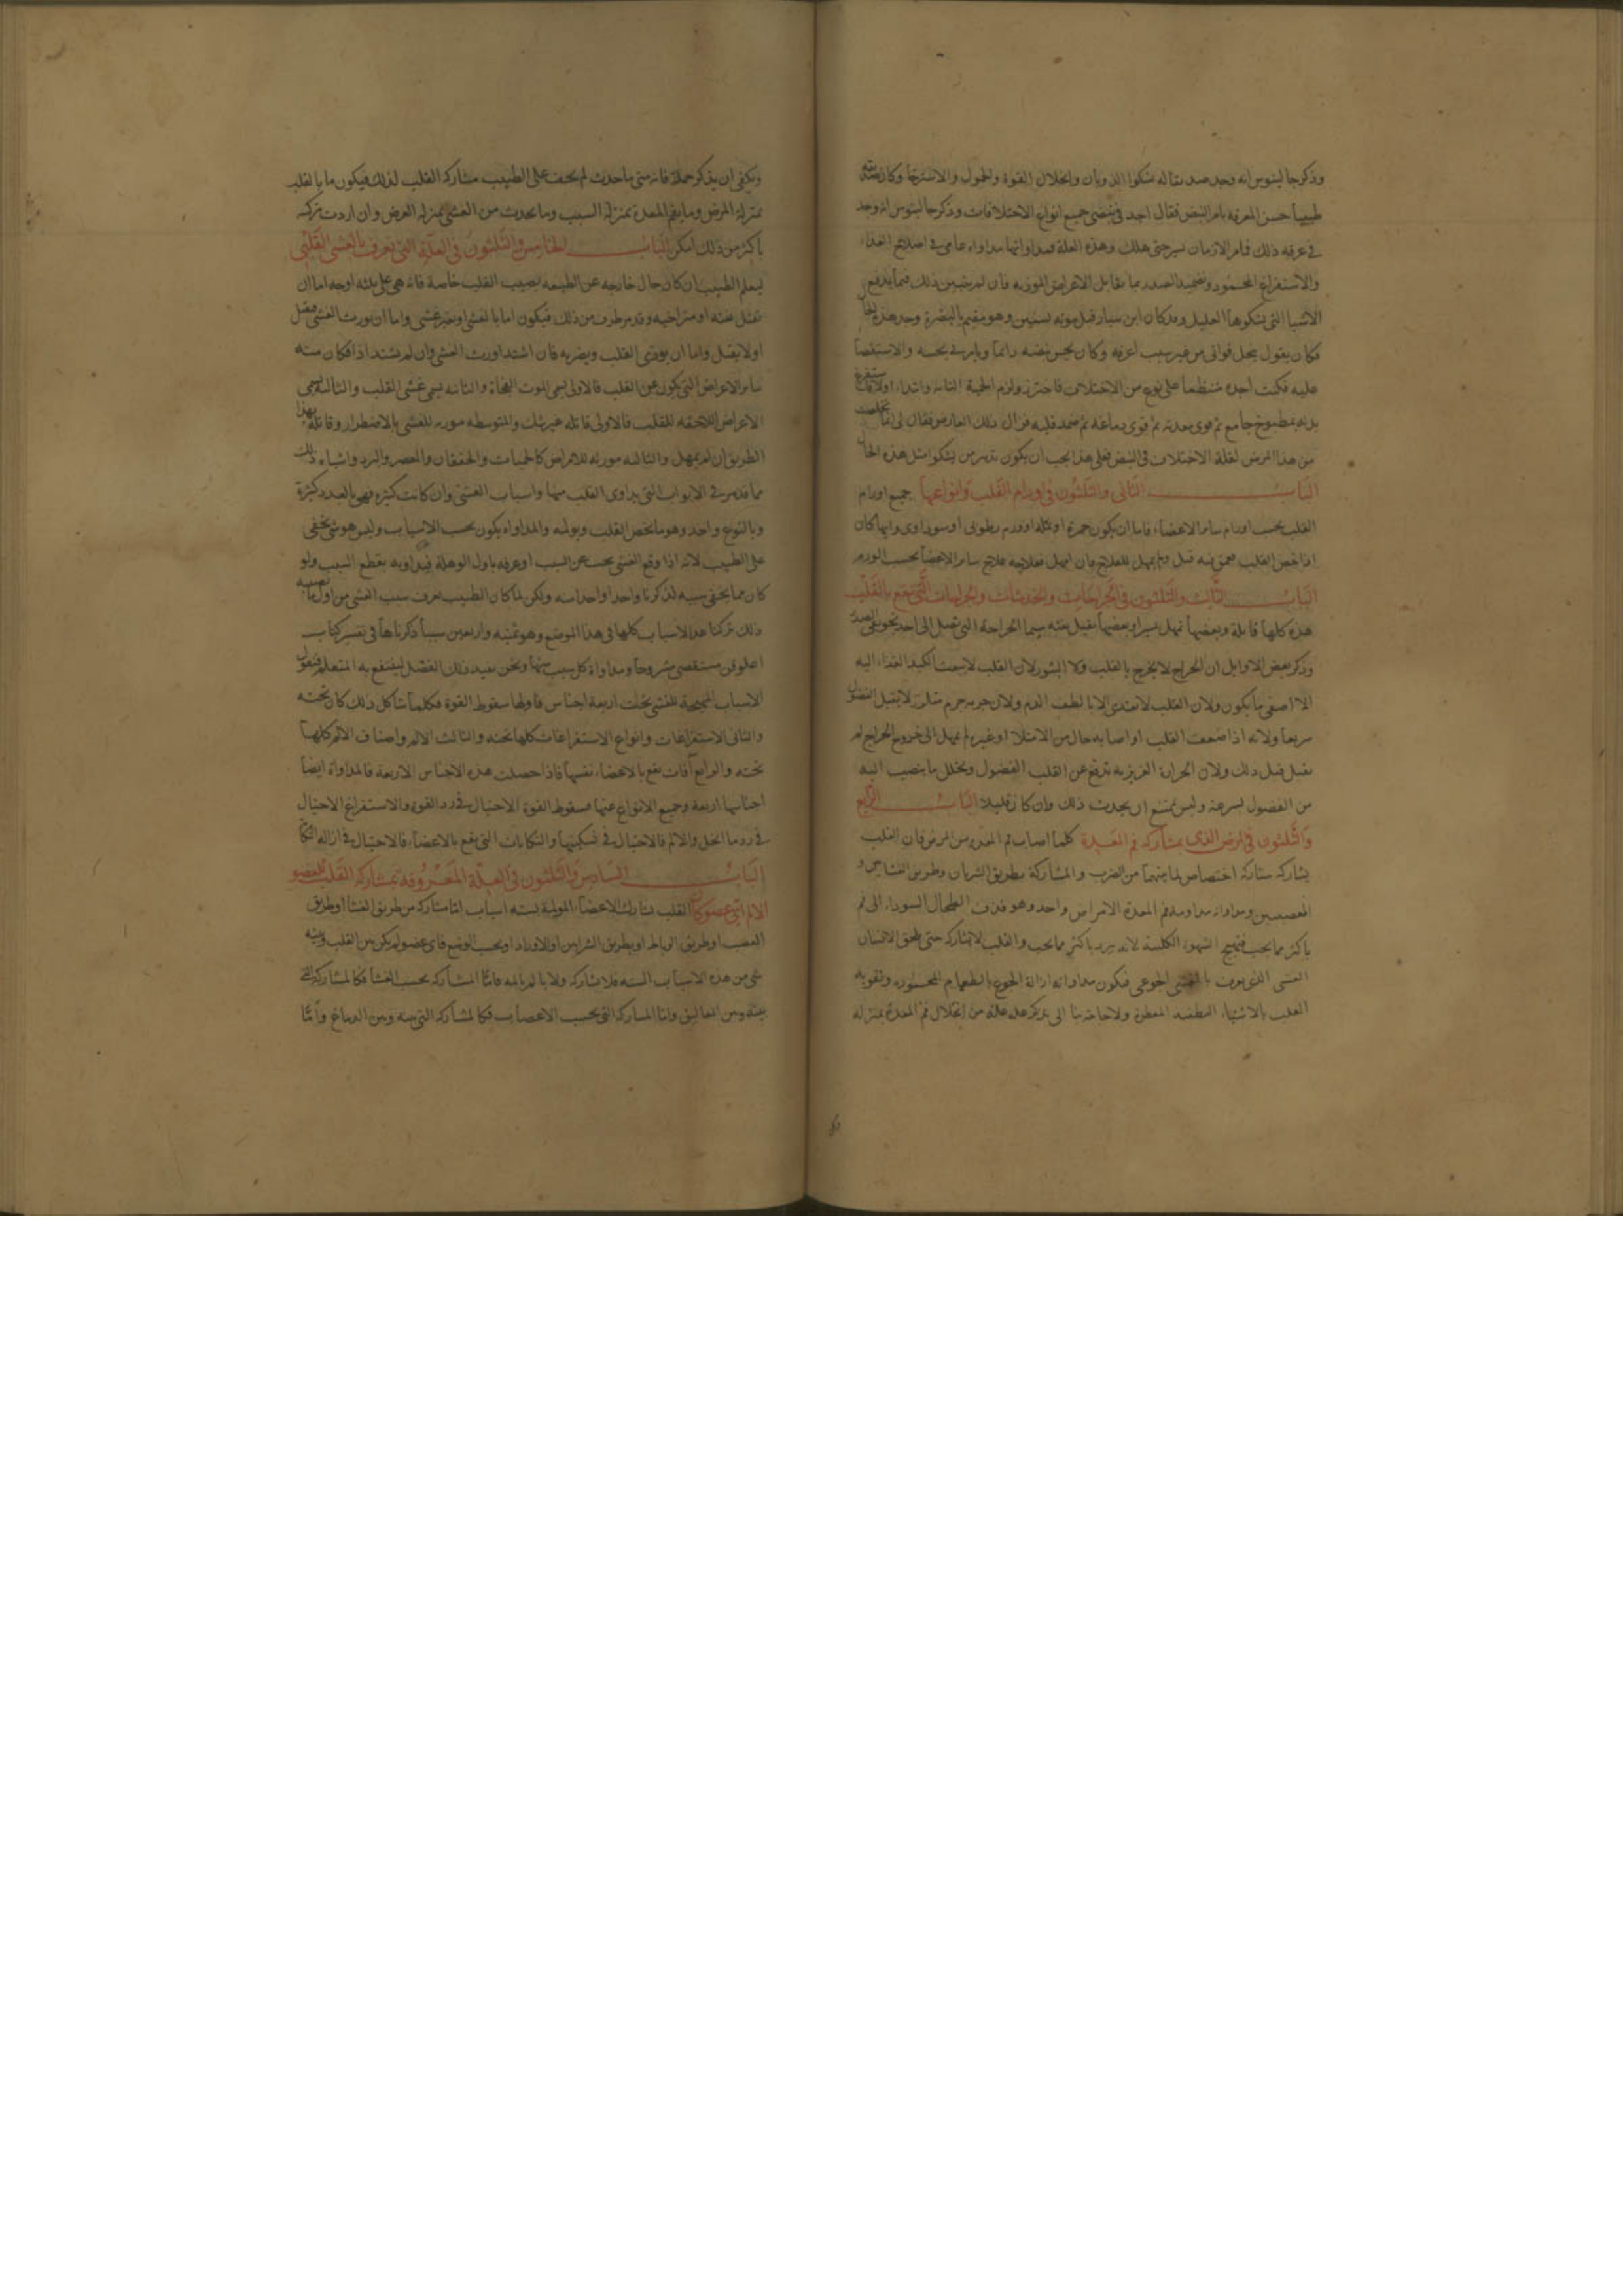 وذكر جالينوس انه وجد صديقا له شكوا الذوبان وانحلال القوة والخمول والاسترخا وكان
طبيبا حسن المعرفة بامر النبض فقال اجد في نبضي جميع انواع الاختلافات وذكر جالينوس انه وجد
في عرقه ذلك فلم الازمان يسير حتى هلك وهذه العلة مداواتها مداواه عامى في اصلاح الغذاء
والاستفراغ المحمود وتضميد الصدر بما يقابل الاعراض الموذيه فان لم يتبين ذلك فبما يدفع
الاشيا التي يشكوها العليل وقد كان ابن سيار قبل موته بسنين وهو مقيم بالبصرة وجد هذه الحال
فكان يقول ينحل قواى من غير سبب اعرفه وكان يجس نبضه دائما ويامر في بجسه والاستقصا
عليه فكنت اجده منتظما على نوع من الاختلاف فاحترز ولزم الحمية التامه وابتداء اولا فاستفرغ
بدنه بمطبوخ جامع ثم قوى معدته ثم قوى دماغه ثم ضمد قلبه فزال ذلك العارض فقال لى انما تخلصت
من هذا المرض لقلة الاختلاف في النبض فعلى هذا يجب ان يكون تدبير من يشكوا مثل هذه الحال
الباب الثانى والثلثون في اورام القلب وانواعها جميع اورام
القلب بحسب اورام سائر الاعضاء فاما ان يكون حمرة او نملة او ورم رطوبى او سوداوى وايها كان
اذا خص القلب عمق فيه قتل ولم يمهل للعلاج فان امهل فعلاجه علاج سائر الاعضا بحسب الورم
الباب الثالث والثلثون في الجراحات والخدشات والخراجات التى تقع بالقلب
هذه كلها قاتلة وبعضها تمهل يسيرا وبعضها تقتل بغته سيما الجراحة التى تصل الى احد تجويفى
وذكر بعض الاوايل ان الخراج لا يخرج بالقلب ولا البثور لان القلب لا يبعث الكبد الغذاء اليه
الا اصفى ما يكون ولان القلب لا يغتدى الا بالطف الدم ولان جرمه جرم متلزز لا يقبل الفضول
سريعا ولانه اذا ضعف القلب او اصابه حال من الامتلا او غيره لم يمهل الى خروج الخراج لم
يقتل قبل ذلك ولان الحرارة الغريزيه تدفع عن القلب الفضول وتحلل ما ينصب اليه
من الفضول بسرعة وليس يمتنع ان يحدث ذلك وان كان قليلا الباب الرابع
والثلثون في المرض الذى بمشاركه فم المعدة كلما اصاب فم المعده من المرض فان القلب
يشاركه مشاركه اختصاص لما بينهما من القرب والمشاركة بطريق الشريان وطريق الغشا بين و
العصبين ومداواته مداومة فم المعدة الامراض واحد وهو قذف الطحال السوداء الى فم
باكثر مما يجب فتهيج الشهوة الكلبية لانه يبرد باكثر مما يجب والقلب لا يشاركه حتى يلحق الانسان
الغشى الذى يعرف بالغشى الجوعى فيكون مداواته ازالة الجوع بالطعام المحمود وتقويه
القلب بالاشياء اللطيفه العطرة ولا حاجة بنا الى ان نذكر علة علة من انحلال فم المعدة بمنزلة
ويكفى ان يذكر جملة فانه متى ما حدث لم يخف على الطبيب مشاركه القلب لذلك فيكون ما بالقلب
بمنزلة المرض وما بفم المعدة بمنزلة السبب وما يحدث من الغشى بمنزلة العرض وان اردت
باكثر من ذلك امكن الباب الخامس والثلثون في العلة التى تعرف بالغشى القلبى
ليعلم الطبيب ان كان حال خارجه عن الطبيعه يصيب القلب خاصة فانه هي على ثلثه اوجه اما ان
تقتل بغته او متراخيه وقد مر طرف من ذلك فيكون اما بالغشى او بغير غشى واما ان يورث الغشى فيقتل
او لا يقتل واما ان يوذى القلب ويضر به فان اشتد اورث الغشى وان لم يشتد اذا فكان منه
سائر الاعراض التى يكون عن القلب فالاولى يسمى الموت الفجاة والثانيه يسمى غشى القلب والثالثه يسمى
الاعراض اللاحقه للقلب فالاولى قاتله غير شك والمتوسطه مورثه للغشى بالاضطرار وقاتلة بهذا
الطريق ان لم يمهل والثالثه مورثه للامراض كالحميات والخفقان والعصر والبرد واشباه ذلك
مما قد مر في الابواب التى يداوى القلب منها واسباب الغشى وان كانت كثيره فهى بالعدد كثيرة
وبالنوع واحد وهو ما يخص القلب ويولمه والمداواه يكون بحسب الاسباب وليس هو شى يخفى
على الطبيب لانه اذا وقع الغشى بحث عن السبب او عرفه باول الوهلة فيداويه بقطع السبب ولو
كان مما يخفى سببه لذكرنا واحدا واحدا منه ولكن لما كان الطبيب يعرف سبب الغشى من اول
ذلك تركنا عد الاسباب كلها في هذا الموضع وهو ثمنيه واربعين سببا ذكرناها في تفسير كتاب
اغلوقن مستقصى مشروحا ومداواة كل سبب منها ونحن نعيد ذلك الفصل لينتفع به المتعلم فنقول
الاسباب المهيجة للغشى تحت اربعة اجناس فاولها سقوط القوة فكلما شاكل ذلك كان تحته
والثانى الاستفراغات وانواع الاستفراغات كلها تحته والثالث الالم واصناف الالم كلها
تحته والرابع آفات تقع بالاعضاء نفسها فاذا حصلت هذه الاجناس الاربعة فالمداواة ايضا
اجناسها اربعة وجميع الانواع عنها فسقوط القوة الاحتيال في رد القوه والاستفراغ الاحتيال
في رد ما انحل والالم فالاحتيال في تسكينها والنكايات التى تقع بالاعضاء فالاحتيال في ازالة
الباب السادس والثلثون في العلة المعروفه بمشاركه القلب للعضو
الالم اى عضو كان القلب يشارك الاعضاء المولمة لسته اسباب اما مشاركه من طريق الغشا او طريق
العصب او طريق الرباط او بطريق الشرايين او الاوراد او بحسب الوضع فاى عضو لم يكن بين القلب وبينه
شى من هذه الاسباب السته فلا يشاركه ولا يالم بالمه فاما المشاركه بحسب الغشا فكالمشاركة التى
بينه وبين المعاليق واما المشاركة التى بحسب الاعصاب فكالمشاركه التى بينه وبين الدماغ واما